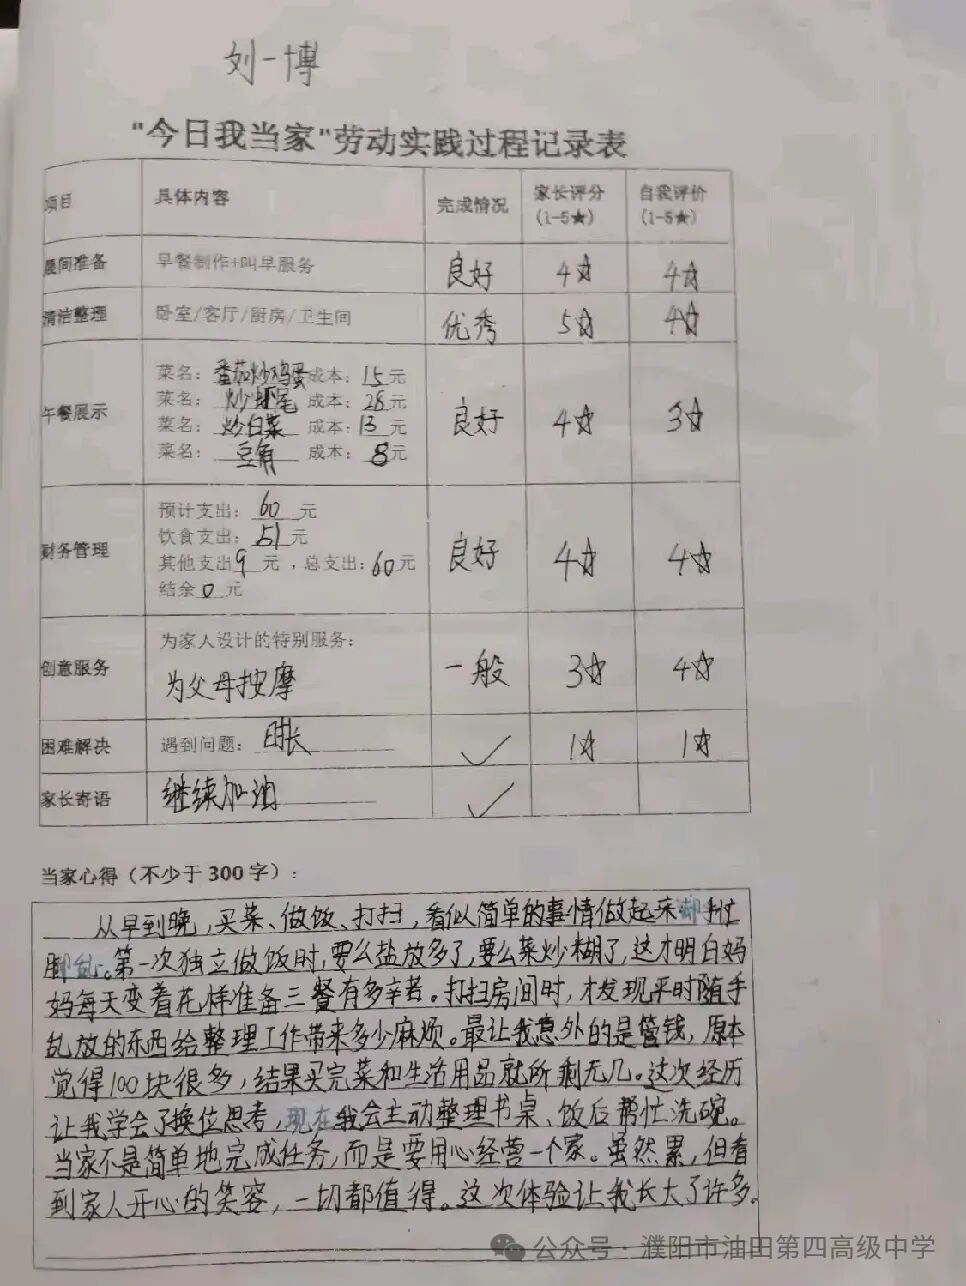 刘一博
"今日我当家"劳动实践过程记录表
项目 具体内容 完成情况 家长评分 (1-5★) 自我评价 (1-5★)
晨间准备 早餐制作+叫早服务 良好 4☆ 4☆
清洁整理 卧室/客厅/厨房/卫生间 优秀 5☆ 4☆
午餐展示 菜名：番茄炒鸡蛋 成本：15元
菜名：炒虾尾 成本：28元
菜名：炒白菜 成本：13元
菜名：豆角 成本：8元
良好 4☆ 3☆
财务管理 预计支出：60元
饮食支出：51元
其他支出9元，总支出：60元
结余0元
良好 4☆ 4☆
创意服务 为家人设计的特别服务：
为父母按摩
一般 3☆ 4☆
困难解决 遇到问题： ✓ 1☆ 1☆
家长寄语 继续加油 ✓
当家心得（不少于300字）：
从早到晚，买菜、做饭、打扫，看似简单的事情做起来却手忙
脚乱。第一次独立做饭时，要么盐放多了，要么菜炒糊了，这才明白妈
妈每天变着花样准备三餐有多辛苦。打扫房间时，才发现平时随手
乱放的东西给整理工作带来多少麻烦。最让我意外的是管钱，原本
觉得100块很多，结果买完菜和生活用品就所剩无几。这次经历
让我学会了换位思考，现在我会主动整理书桌、饭后帮忙洗碗。
当家不是简单地完成任务，而是要用心经营一个家。虽然累，但看
到家人开心的笑容，一切都值得。这次体验让我长大了许多。
公众号：濮阳市油田第四高级中学